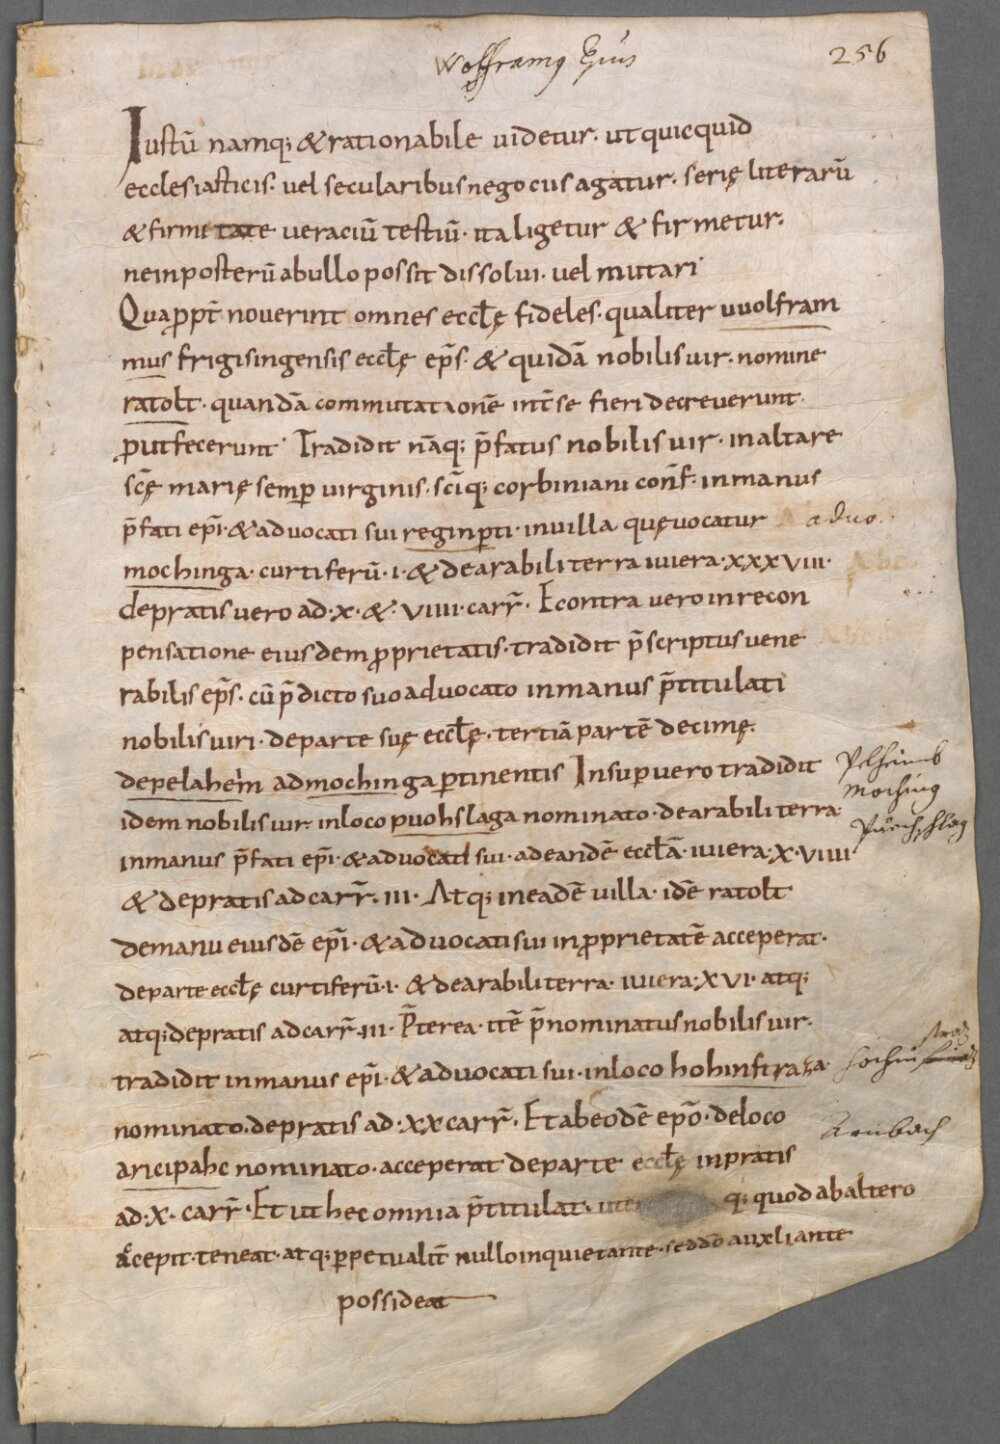 Wolframꝯ Ep̄us
256
Iustū namq; & rationabile uidetur. ut quicquid
ecclesiasticis. uel secularibus negociis agatur. serię literarū
& firmetate ueraciū testiū. ita ligetur & firmetur.
ne in posterū ab ullo possit dissolui. uel mutari.
Quapropt̄ nouerint omnes eccłę fideles. qualiter uuolfram
mus frigisingensis eccłę ep̄s. & quidā nobilis uir. nomine
ratolt. quandā commutationē int̄ se fieri decreuerunt.
ꝓut fecerunt. Tradidit nāq; p̄fatus nobilis uir. in altare
sc̄ę marię semꝑ uirginis. sc̄iq; corbiniani conf̄. in manus
p̄fati ep̄i. & aduocati sui reginꝑti. in uilla quę uocatur
aduo.
mochinga. curtiferū. i. & de arabili terra iuuera. xxxviii.
de pratis uero ad. x. &. viiii. carr̄. Econtra uero in recon
pensatione eiusdem ꝓprietatis. tradidit p̄scriptus uene
rabilis ep̄s. cū p̄dicto suo aduocato in manus p̄titulati
nobilis uiri. de parte suę eccłę. tertiā partē decimę.
de pelaheim ad mochinga ꝑtinentis Insuper uero tradidit
Pelheimb
Moching
idem nobilis uir. in loco puohslaga nominato. de arabili terra
Puechschlag
in manus p̄fati ep̄i. & aduocati sui. ad eandē eccłā. iuuera. x. viiii.
& de pratis ad carr̄. iii. Atq; in eadē uilla. idē ratolt
de manu eiusdē ep̄i. & aduocati sui in ꝓprietatē acceperat.
de parte eccłę curtiferū. i. & de arabili terra. iuuera. xvi. atq;
atq; de pratis ad carr̄. iii. P̄terea. itē p̄nominatus nobilis uir.
tradidit in manus ep̄i. & aduocati sui. in loco hohinstraza.
nominato. de pratis ad. xx carr̄. Et ab eodē ep̄o. de loco
Arnbach
aricipahc nominato. acceperat de parte eccłę in pratis
ad. x. carr̄. Et ut hec omnia p̄titulat. uter q; quod ab altero
accepit. teneat. atq; ꝑpetualit̄ nullo inquietante. sed dō auxliante
possideat